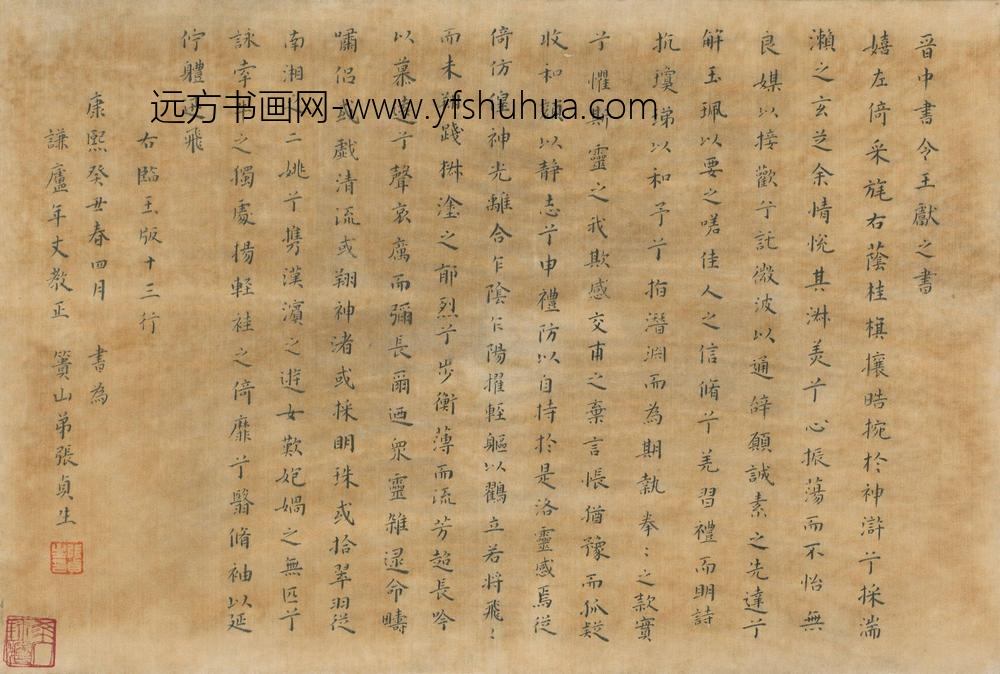 晉中書令王獻之書
嬉左倚采旄右蔭桂棋攘晧捥於神滸兮採湍
瀨之玄芝余情悅其淋美兮心振蕩而不怡無
良媒以接歡兮託微波以通辭願誠素之先達兮
解玉珮以要之嗟佳人之信脩兮羌習禮而明詩
抗瓊珶以和予兮指潛淵而為期執拳〻之款實
兮懼斯靈之我欺感交甫之棄言悵猶豫而狐疑
收和顏以静志兮申禮防以自持於是洛靈感焉徙
倚仿偟神光離合乍陰乍陽擢輕軀以鸖立若将飛〻
而未翔踐椒塗之郁烈兮步衡薄而流芳超長吟
以慕遠兮聲哀厲而彌長爾迺衆靈雜遝命疇
嘯侣或戲清流或翔神渚或採明珠或拾翠羽從
南湘之二姚兮攜漢濱之遊女歎媤媧之無匹兮
詠牽牛之獨處揚輕袿之倚靡兮翳脩袖以延
佇體迅飛
右臨玉版十三行
康熙癸丑春四月 書為
謙廬年丈教正 簣山弟張貞生
远方书画网-www.yfshuhua.com